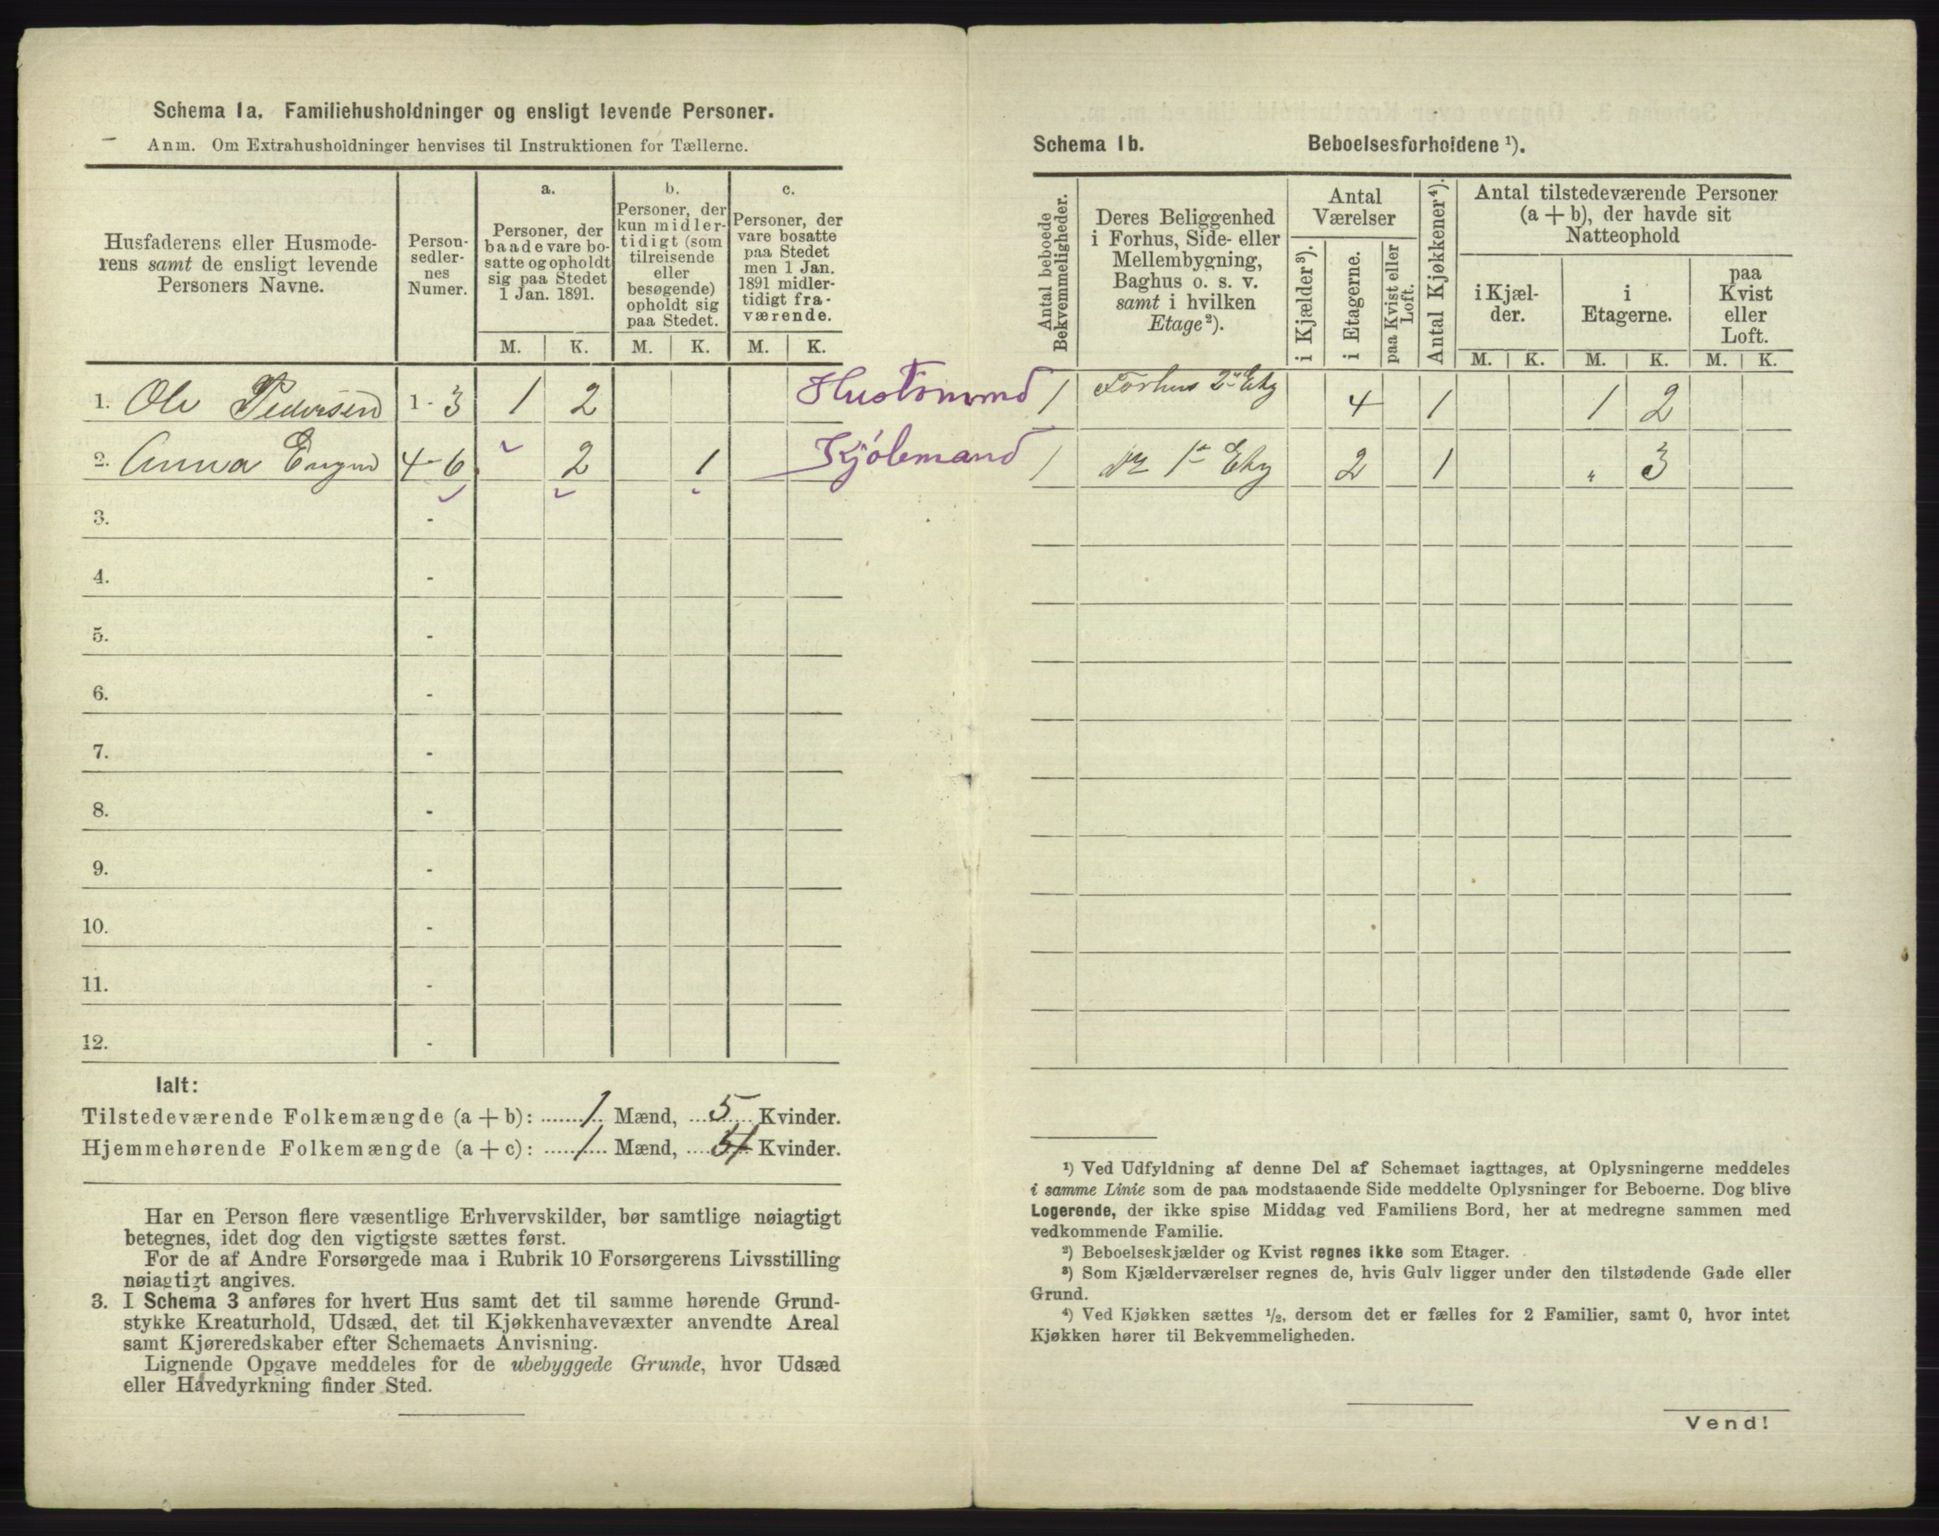 Schema 1a. Familiehusholdninger og ensligt levende Personer.
Anm. Om Extrahusholdninger henvises til Instruktionen for Tællerne.
Husfaderens eller Husmoderens samt de ensligt levende Personers Navne.
Person-
sedler-
nes
Numer.
a.
Personer, der
baade vare bo-
satte og opholdt
sig paa Stedet
1 Jan. 1891.
b.
Personer, der
kun midler-
tidigt (som
tilreisende
eller
besøgende)
opholdt sig
paa Stedet.
c.
Personer, der
vare bosatte
paa Stedet
men 1 Jan.
1891 midler-
tidigt fra-
værende.
M. K. M. K. M. K.
1. Ole Pedersen 1 - 3 1 2
2. Anna 4 - 6 2 1
3. -
4. -
5. -
6. -
7. -
8. -
9. -
10. -
11. -
12. -
Ialt:
Tilstedeværende Folkemængde (a + b): 1 Mænd, 5 Kvinder.
Hjemmehørende Folkemængde (a + c): 1 Mænd, 4 Kvinder.
Har en Person flere væsentlige Erhvervskilder, bør samtlige nøiagtigt
betegnes, idet dog den vigtigste sættes først.
For de af Andre Forsørgede maa i Rubrik 10 Forsørgerens Livsstilling
nøiagtigt angives.
3. I Schema 3 anføres for hvert Hus samt det til samme hørende Grund-
stykke Kreaturhold, Udsæd, det til Kjøkkenhavevæxter anvendte Areal
samt Kjøreredskaber efter Schemaets Anvisning.
Lignende Opgave meddeles for de ubebyggede Grunde, hvor Udsæd
eller Havedyrkning finder Sted.
Schema 1b. Beboelsesforholdene ¹).
Antal beboede
Bekvemmeligheder.
Deres Beliggenhed
i Forhus, Side- eller
Mellembygning,
Baghus o. s. v.
samt i hvilken
Etage ²).
Antal
Værelser
i Kjælder ³).
i Etagerne.
paa Kvist eller
Loft.
Antal Kjøkkener ⁴).
Antal tilstedeværende Personer
(a + b), der havde sit
Natteophold
i Kjæl-
der.
i
Etagerne.
paa
Kvist
eller
Loft.
M. K. M. K. M. K.
1 Forhus 2 Etg 4 1 1 2
Kjøbmand 1 1 Etg 2 1 " 3
¹) Ved Udfyldning af denne Del af Schemaet iagttages, at Oplysningerne meddeles
i samme Linie som de paa modstaaende Side meddelte Oplysninger for Beboerne. Dog blive
Logerende, der ikke spise Middag ved Familiens Bord, her at medregne sammen med
vedkommende Familie.
²) Beboelseskjælder og Kvist regnes ikke som Etager.
³) Som Kjælderværelser regnes de, hvis Gulv ligger under den tilstødende Gade eller
Grund.
⁴) Ved Kjøkken sættes ½, dersom det er fælles for 2 Familier, samt 0, hvor intet
Kjøkken hører til Bekvemmeligheden.
Vend!